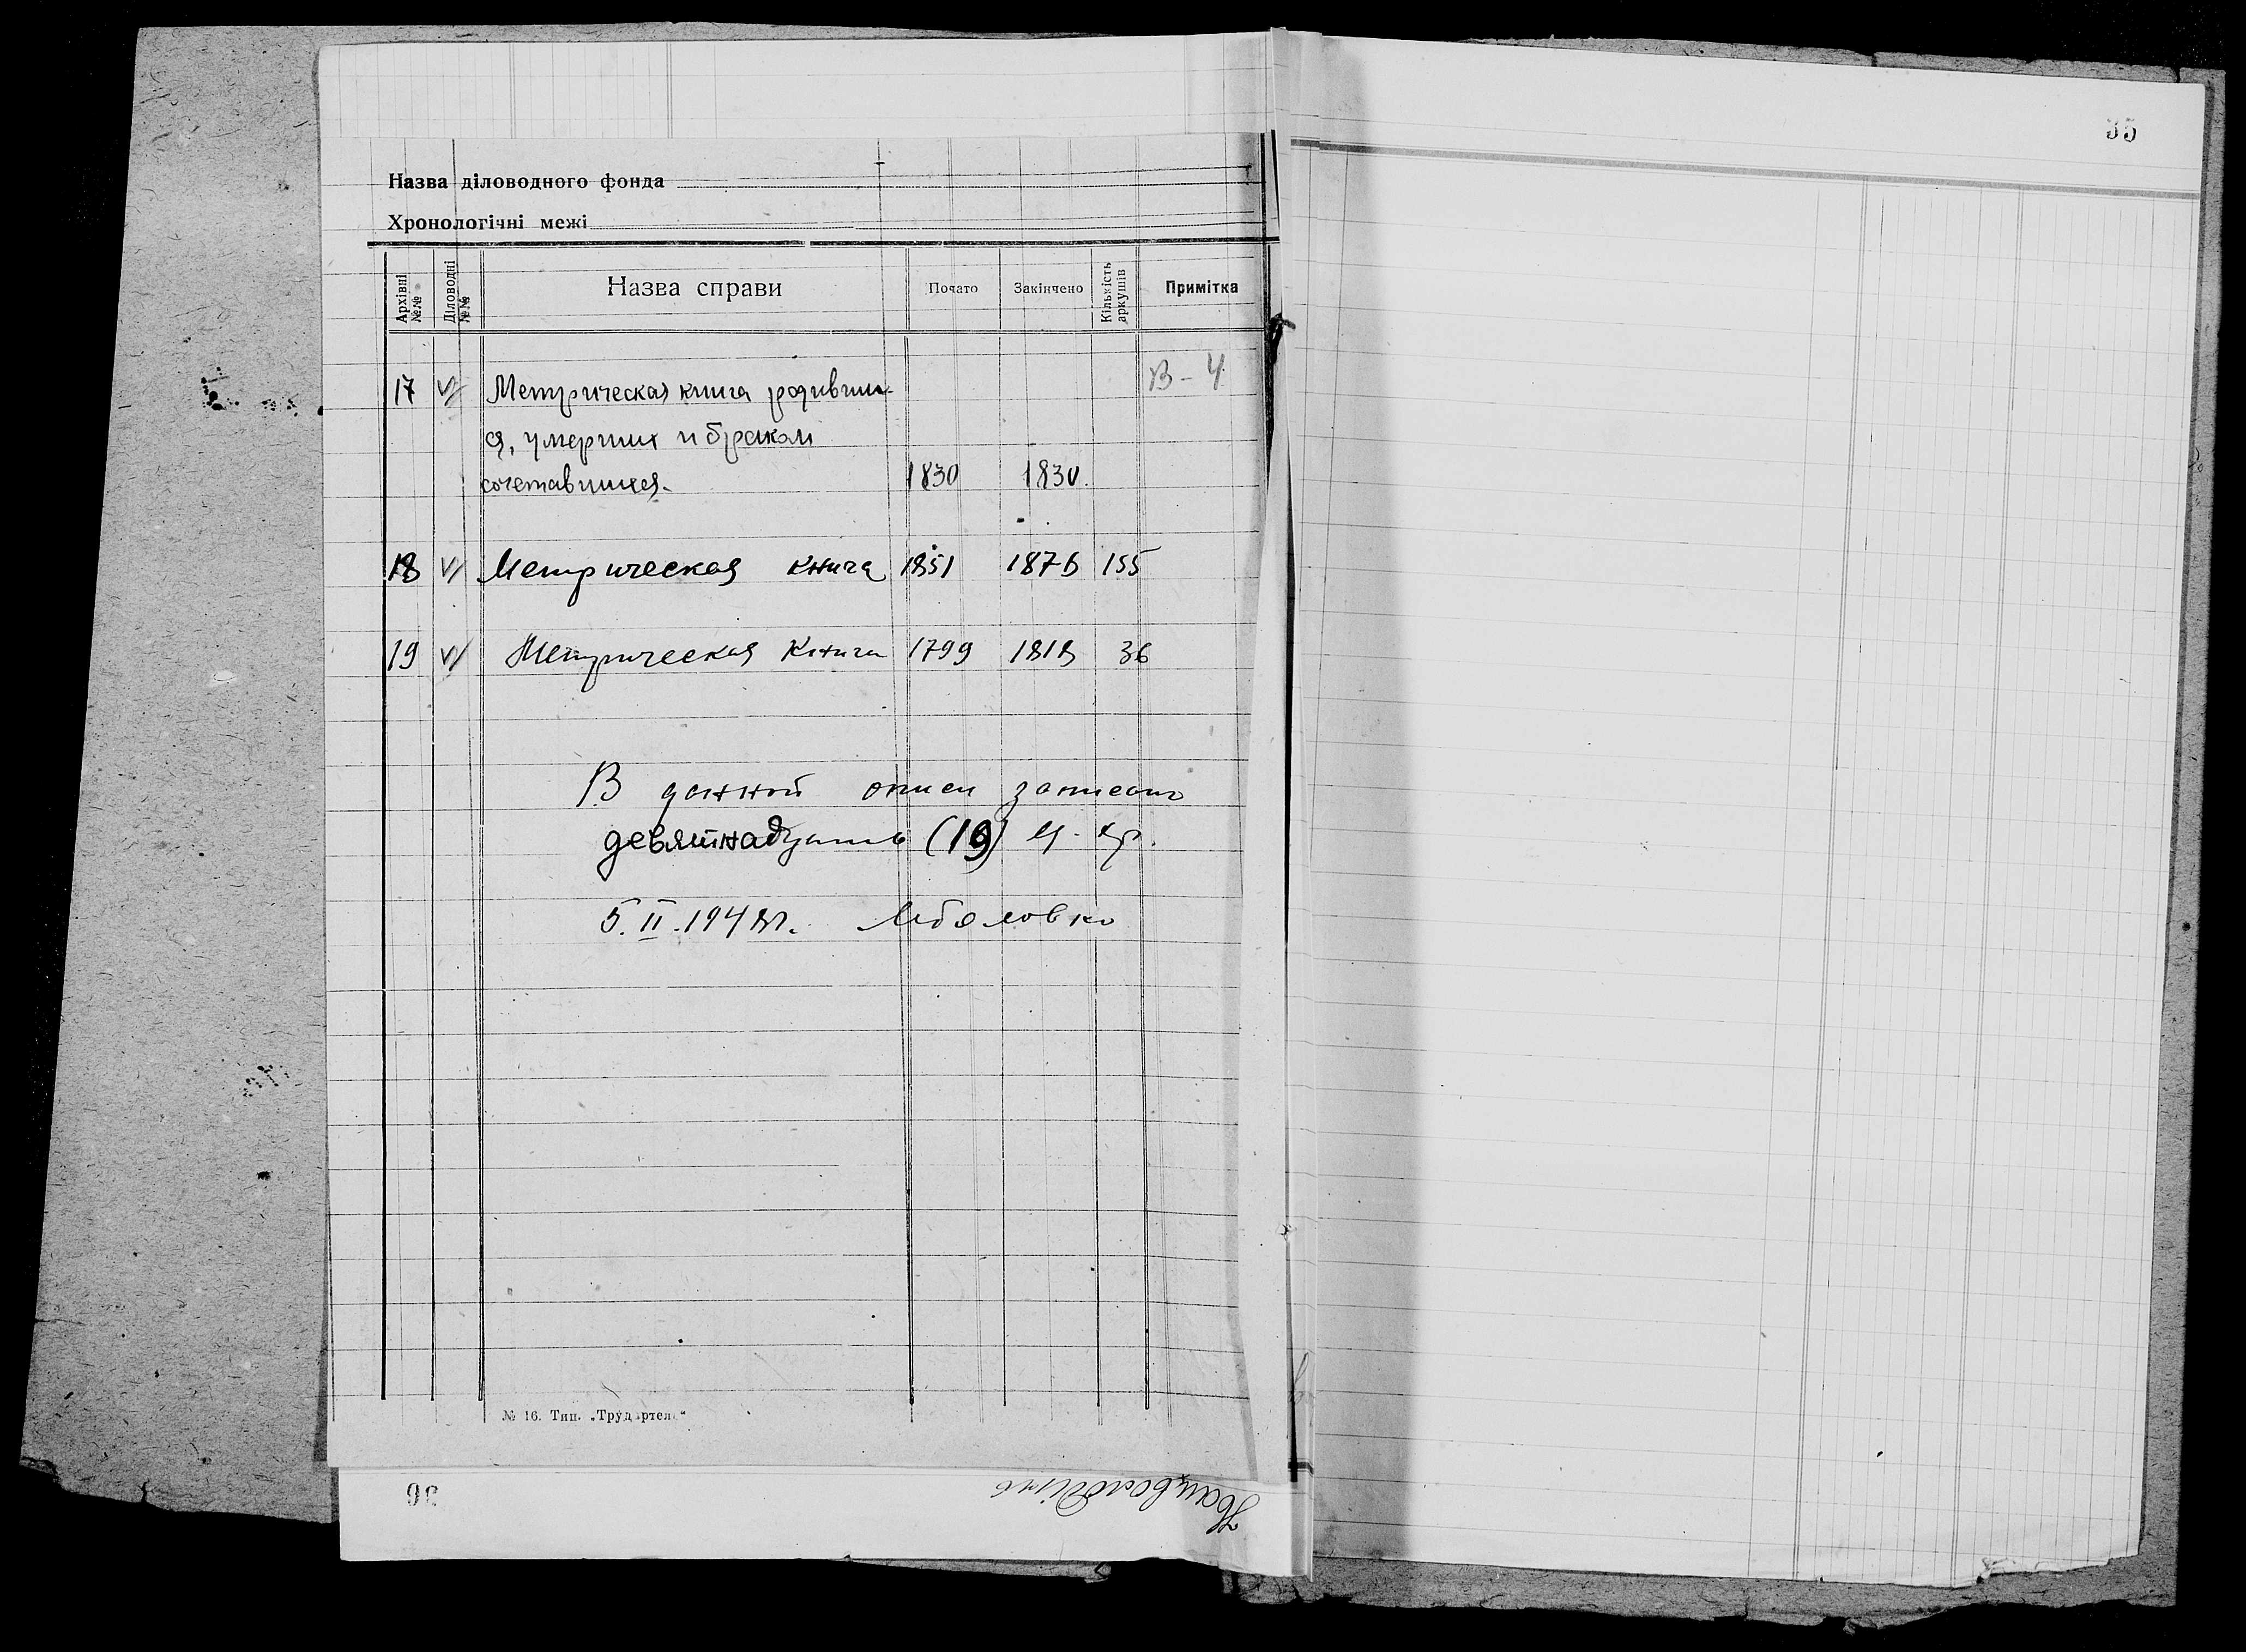 35
Назва діловодного фонда
Хронологічні межі
Архівні №№ Діловодні №№ Назва справи Почато Закінчено Кількість аркушів Примітка
17 V Метрическая книга родивши- В - 4
ся, умерших и браком
сочетавшихся. 1830 1830.
18 V Метрическая книга 1851 1876 155
19 V Метрическая Книга 1799 1818 36
В данной описи записано
девятнадцать (19) ед. хр.
5.II.1948г.
№ 16. Тип. „Трудартель“
36